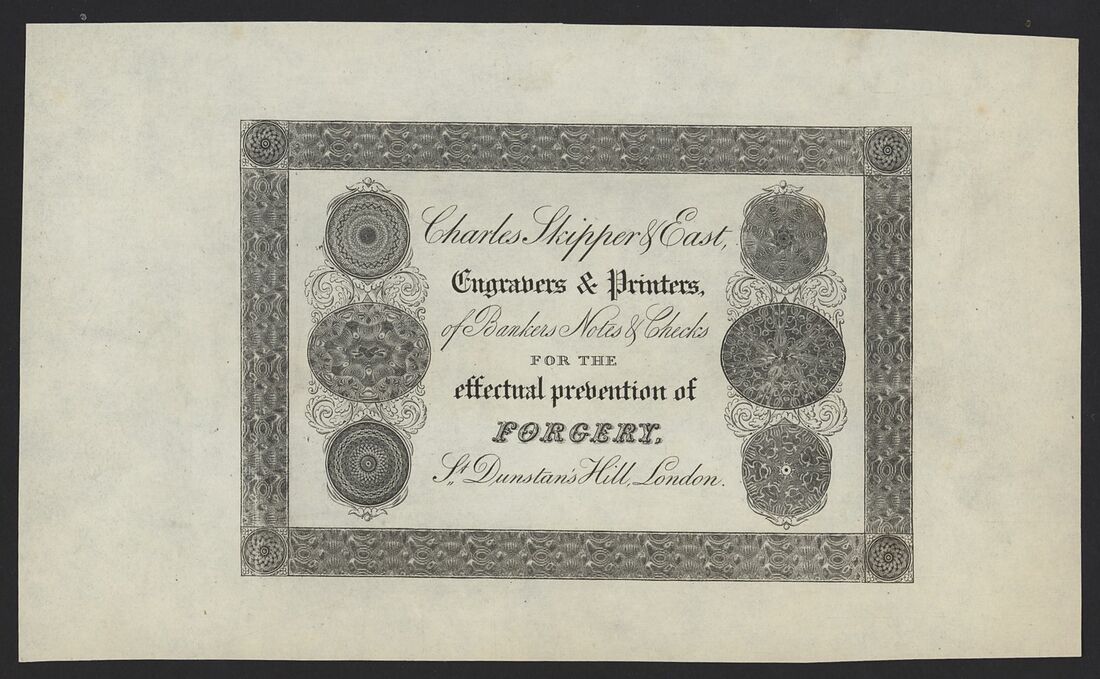 Charles Skipper & East,
Engravers & Printers,
of Bankers Notes & Checks
FOR THE
effectual prevention of
FORGERY,
St Dunstan's Hill, London.